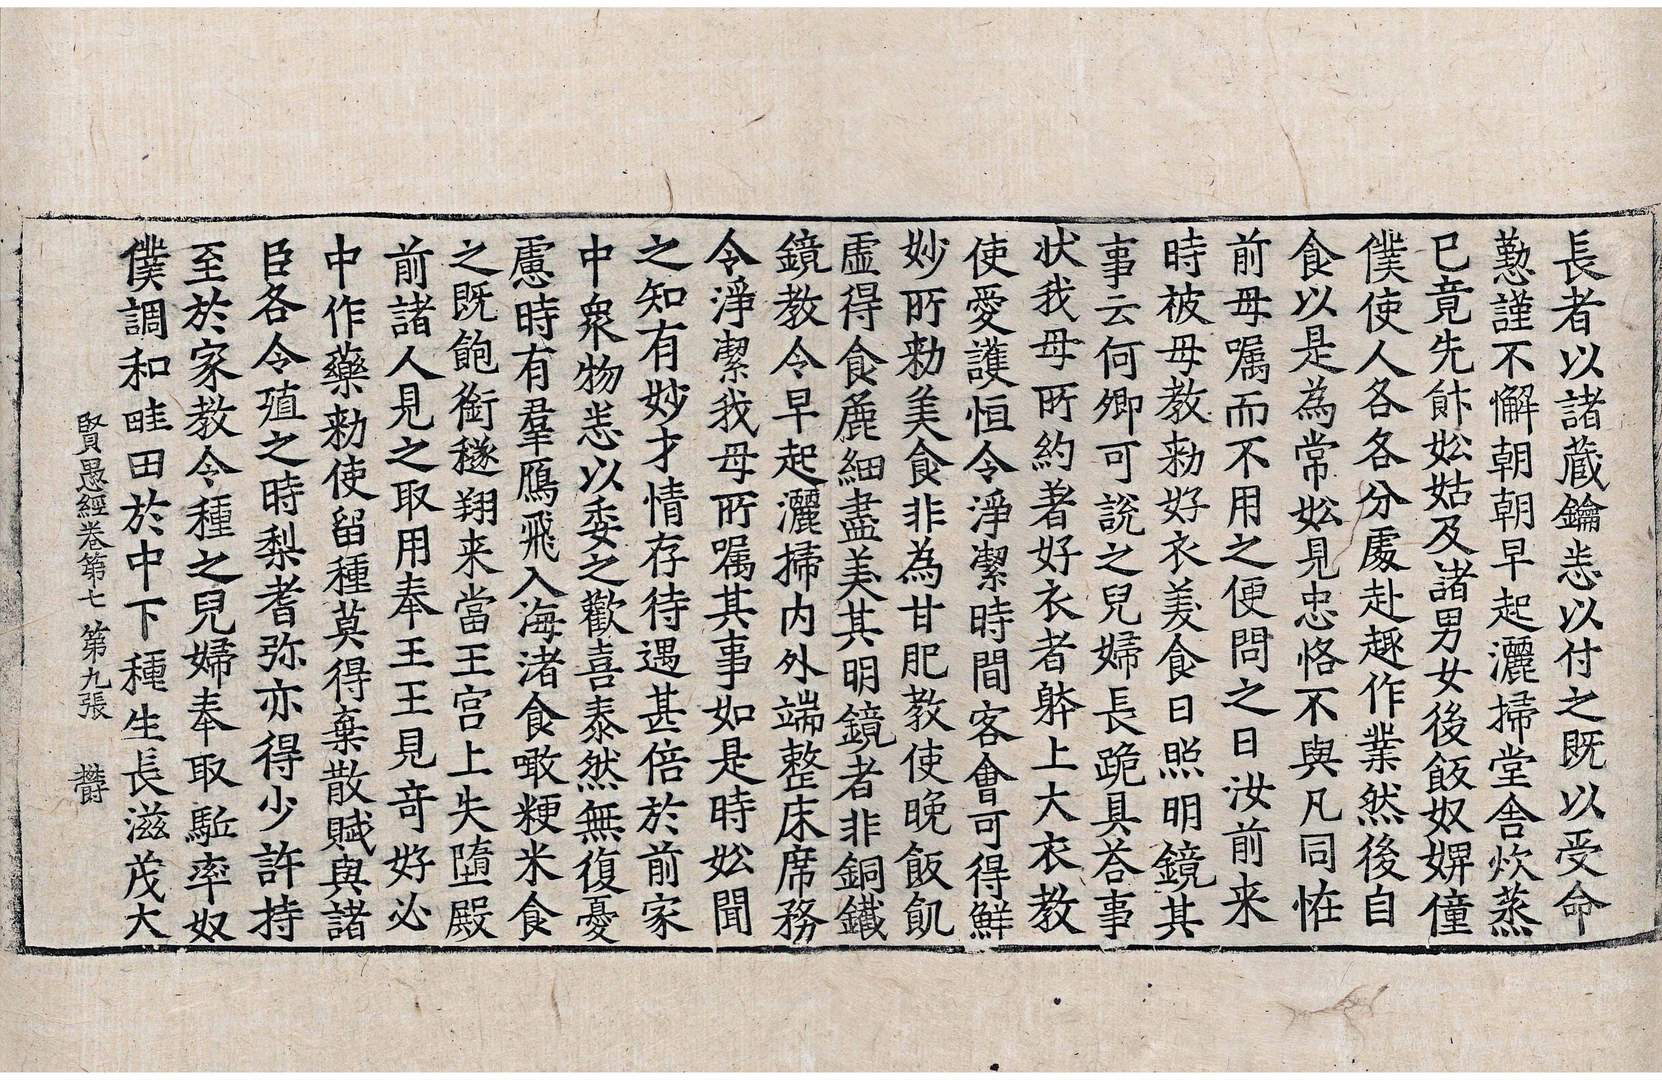 長者以諸蔵鑰悉以付之既以受命
懃謹不懈朝朝早起灑掃堂舎炊蒸
已竟先飰妐姑及諸男女後飯奴婢僮
僕使人各各分處赴趣作業然後自
食以是為常妐見忠恪不與凡同恠
前毋嘱而不用之便問之曰汝前来
時被毋教勑好衣美食日照明鏡其
事云何卿可說之兒婦長跪具荅事
状我毋所約著好衣者躰上大衣教
使愛護恒令淨潔時間客會可得鮮
妙所勑美食非為甘肥教使晚飯飢
虚得食麁細盡美其明鏡者非銅鐵
鏡教令早起灑掃内外端整床席務
令淨潔我毋所嘱其事如是時妐聞
之知有妙才情存待遇甚倍於前家
中衆物悉以委之歡喜泰然無復憂
慮時有羣鴈飛入海渚食噉粳米食
之既飽銜穟翔来當王宫上失墮殿
前諸人見之取用奉王王見竒好必
中作藥勑使留種莫得棄散賦與諸
臣各令殖之時梨耆弥亦得少許持
至於家教令種之兒婦奉取駈率奴
僕調和畦田於中下種生長滋茂大
賢愚經卷第七　第九張　欝